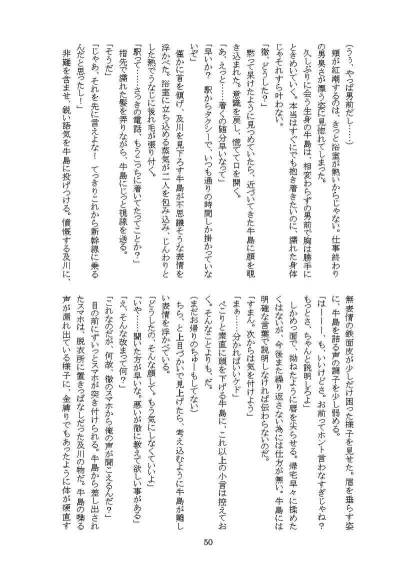 (うぅ、やっぱ男前だし……)
頬が紅潮するのは、きっと浴室が熱いからじゃない。仕事終わり
の男臭さが漂う姿に見惚れてしまった。
久しぶりに会う生身の牛島は、相変わらずの男前で胸は勝手に
ときめいていく。本当はすぐにでも抱き着きたいのに、濡れた身体
じゃそれすら叶わない。
「徹、どうした?」
黙って呆けたように見つめていたら、近づいてきた牛島に顔を覗
き込まれた。意識を戻し、慌てて口を開く。
「あ、えっと……着くの随分早いなって」
「早いか? 駅からタクシーで、いつも通りの時間しか掛かっていな
いぞ」
僅かに首を傾げ、及川を見下ろす牛島が不思議そうな表情を
浮かべた。浴室に立ち込める蒸気が二人を包み込み、じんわりと
した熱でうなじに後れ毛が張り付く。
「駅って……さっきの電話、もうこっちに着いてたってことか?」
指先で濡れた髪を弄りながら、牛島にじっと視線を送る。
「そうだ」
「じゃあ、それを先に言えよな! てっきりこれから新幹線に乗る
んだと思った!」
非難を含ませ、鋭い語気を牛島に投げつける。憤慨する及川に、
無表情の鉄面皮が少しだけ困った様子を見せた。眉を垂らす姿
に、牛島を詰る声の調子を少し弱める。
「はーーー、も、いいけどさ。お前ってホント言わなすぎじゃね?
もっとさ、ちゃんと説明しろよ」
しかめっ面で、拗ねたように唇を尖らせる。帰宅早々に揉めた
くはないが、今後また繰り返さない為には仕方が無い。牛島には
明確な言葉で説明しなければ伝わらないのだ。
「すまん、次からは気を付けよう」
「まぁ……分かればいいケド」
ぺこりと素直に頭を下げる牛島に、これ以上の小言は控えてお
く。そんなことよりも、だ。
「まだお帰りのちゅーもしてない」
ちら、と上目づかいで見上げたら、考え込むように牛島が難し
い表情を浮かべている。
「どうしたの、そんな顔して。もう気にしなくていいよ」
「いや……聞いた方が早いな。悪いが徹に教えて欲しい事がある」
「え、そんな改まって何?」
「これなのだが、何故、徹のスマホから俺の声が聞こえるんだ?」
目の前にずいっとスマホが突き付けられる。牛島から差し出され
たスマホは、脱衣所に置きっぱなしだった及川の物だ。牛島の喘る
声が漏れ出ている様子に、金縛りでもあったように体が硬直す
50